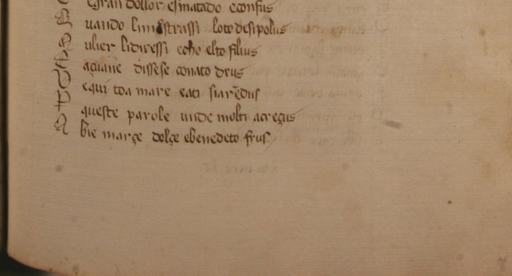 gran dollor esmatado econfus
uando li mostrassi loto desipolus
ulier lidiressi echo elto filius
açuane dissese conato deus
equi toa mare eaci siaredus
queste parole unde molti acreçus
bie março dolçe ebenedeto frus